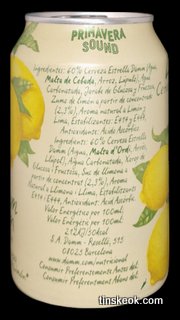 PRIMAVERA
SOUND
Ingredientes: 60% Cerveza Estrella Damm (Agua,
Malta de Cebada, Arroz, Lúpulo), Agua
Carbonatada, Jarabe de Glucosa y Fructosa,
Zumo de limón a partir de concentrado
(2,3%), Aroma natural a Limón y
Lima, Estabilizantes: E414 y E445,
Antioxidante: Ácido Ascórbico
Ingredients: 60% Cervesa Estrella
Damm (Aigua, Malta d'Ordi, Arròs,
Llúpol), Aigua Carbonatada, Xarop de
Glucosa i Fructosa, Suc de llimona a
partir de concentrat (2,3%), Aroma
natural a Llimona i Llima, Estabilitzants:
E414 i E445, Antioxidant: Àcid Ascòrbic
Valor Energético por 100ml:
Valor Energètic per 100ml:
212KJ/50kcal
S.A. Damm - Roselló, 515
08025 Barcelona
www.damm.com/nutricional
Consumir Preferentemente Antes del
Consumir Preferentment Abans del
tinskeok.com